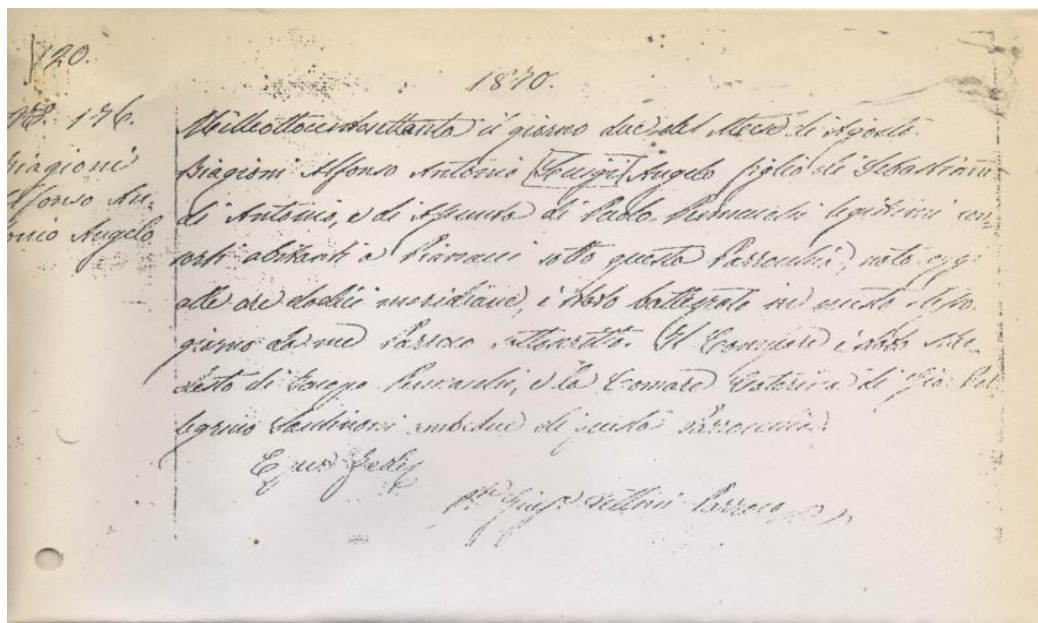 120.
1870.
N. 176.
Biagioni
Alfonso An-
tonio Angelo
Milleottocentosettanta il giorno due del Mese di Agosto
Biagioni Alfonso Antonio Luigi Angelo figlio di Sebastiano
di Antonio, e di Assunta di Paolo legittimi con-
sorti abitanti a sotto questa Parrocchia, nato oggi
alle ore dodici meridiane, è stato battezzato in questo stesso
giorno da me Parroco sottoscritto. Il Compare è stato Mo-
desto di e la Comare Caterina di Gio: Pel-
legrino Santinoni ambedue di questa Parrocchia.
E per fede
Pte Giuse. Parroco